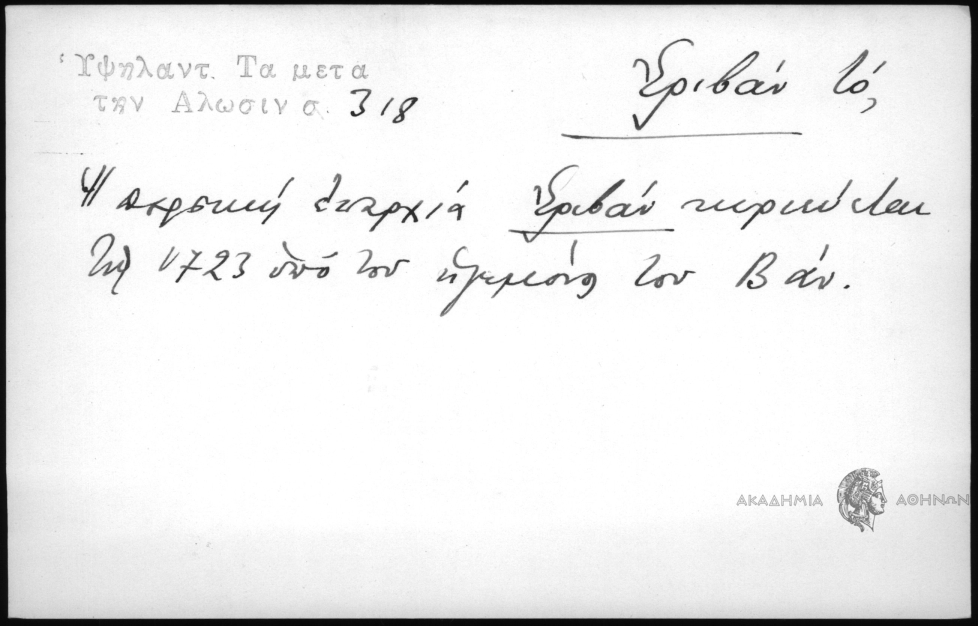 Ὑψηλαντ. Τα μετα
την Αλωσιν σ. 318
Ἐριβάν τό,
Ἡ περσική ἐπαρχία Ἐριβάν
τῷ 1723 ὑπό του ἡγεμόνος του Βάν.
ΑΚΑΔΗΜΙΑ ΑΘΗΝΩΝ